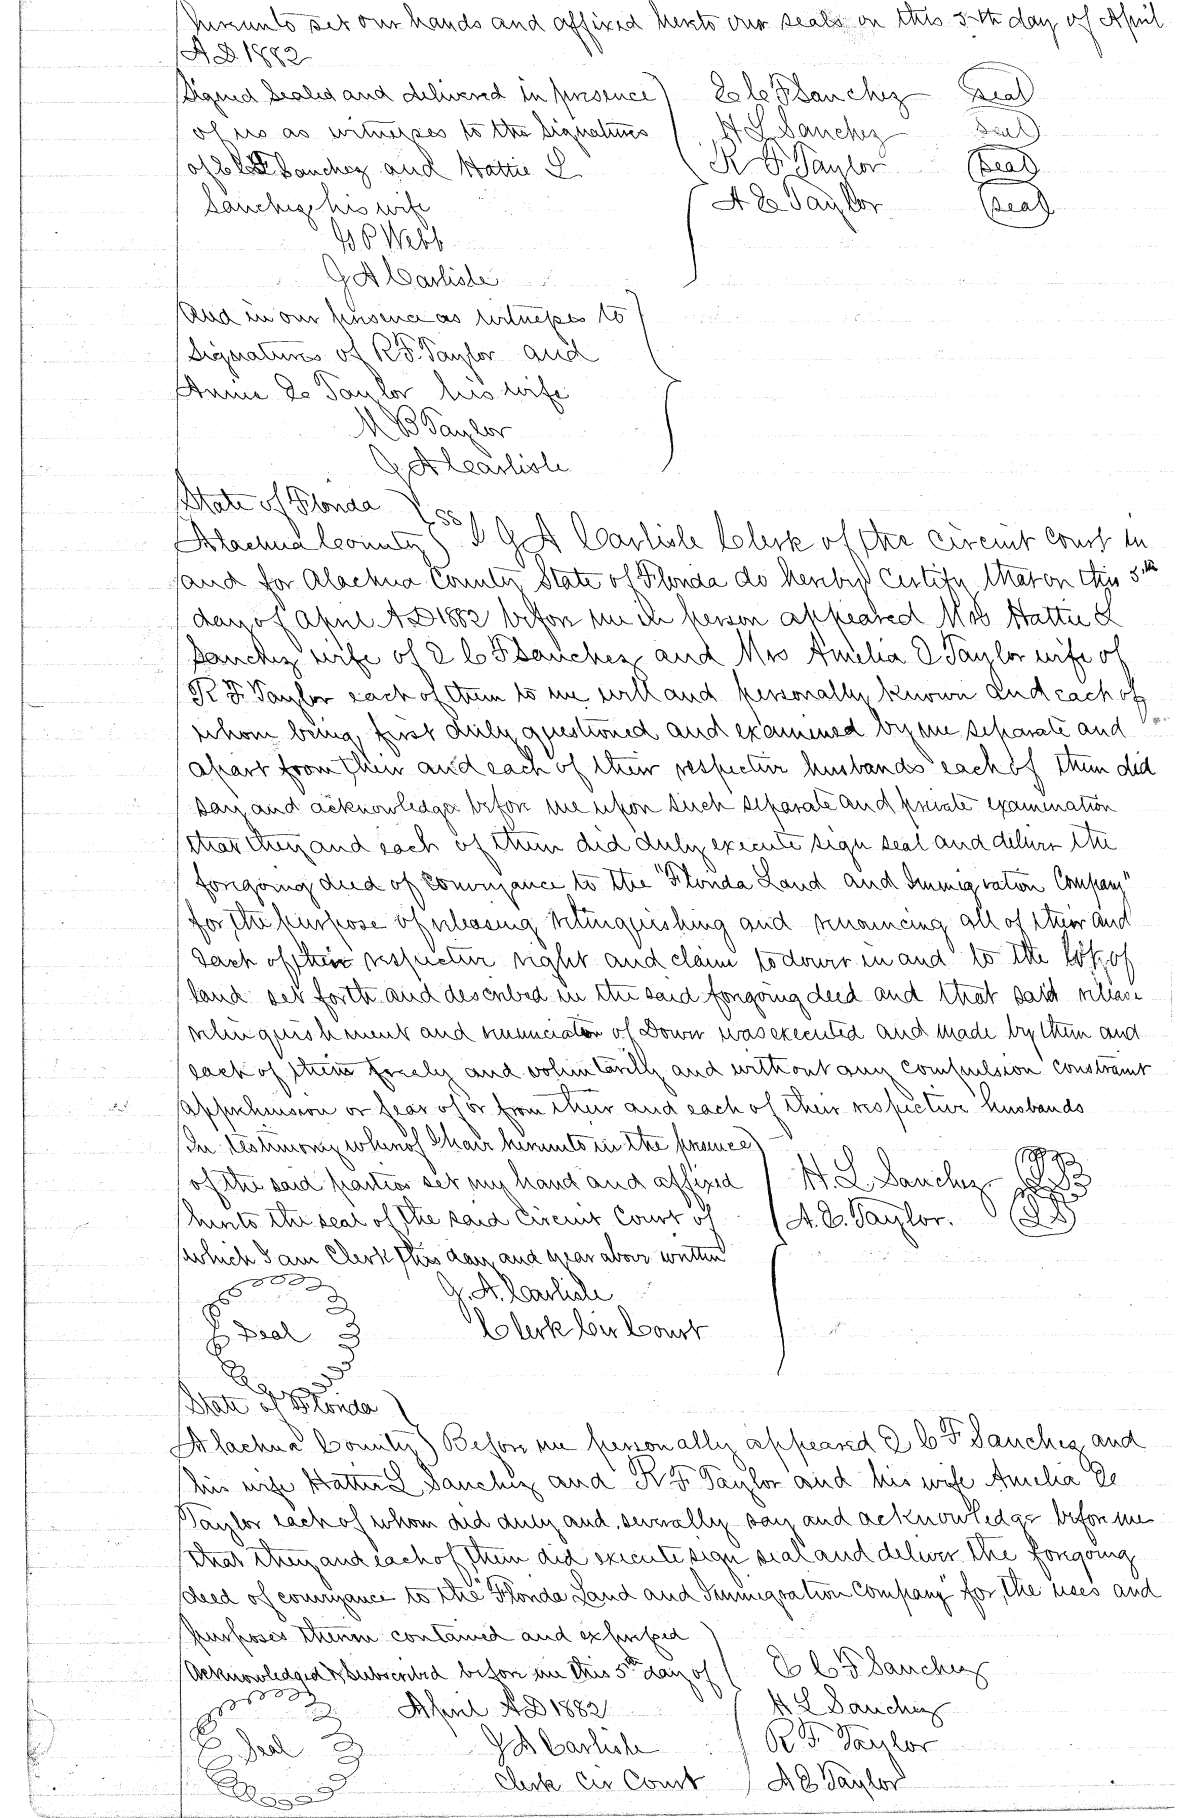 hereunto set our hands and affixed hereto our seals on this 5th day of April
A D 1882
Signed Sealed and delivered in presence) E C F Sanchez Seal
of us as witnesses to the Signatures H L Sanchez Seal
of E C F Sanchez and Hattie L R F Taylor Seal
Sanchez his wife A E Taylor Seal
Webb
G A Carlisle
And in our presence as witnesses to
Signatures of R F. Taylor and
Annie E Taylor his wife
M B Taylor
G A Carlisle
State of Florida
Alachua County ) SS I G A Carlisle Clerk of the Circuit Court in
and for Alachua County State of Florida do hereby Certify that on this 5th
day of April A D 1882 before me in person appeared Mrs Hattie L
Sanchez wife of E C F Sanchez and Mrs Amelia E Taylor wife of
R F Taylor each of them to me well and personally known and each of
whom being first duly questioned and examined by me separate and
apart from their and each of their respective husbands each of them did
say and acknowledge before me upon such separate and private examination
that they and each of them did duly execute sign seal and deliver the
foregoing deed of conveyance to the "Florida Land and Immigration Company"
for the purpose of releasing relinquishing and renouncing all of their and
each of their respective right and claim to dower in and to the lots of
land set forth and described in the said foregoing deed and that said release
relinquishment and renunciation of Dower was executed and made by them and
each of them freely and voluntarily and without any compulsion constraint
apprehension or fear of or from their and each of their respective husbands
In testimony whereof I have hereunto in the presence)
of the said parties set my hand and affixed H. L. Sanchez
hereto the seal of the said Circuit Court of A. E. Taylor.
which I am Clerk this day and year above written
G. A. Carlisle
Seal Clerk Cir Court
State of Florida )
Alachua County ) Before me personally appeared E C F Sanchez and
his wife Hattie L Sanchez and R F Taylor and his wife Amelia E
Taylor each of whom did duly and severally say and acknowledge before me
that they and each of them did execute sign seal and deliver the foregoing
deed of conveyance to the "Florida Land and Immigration Company" for the uses and
purposes therein contained and expressed
Acknowledged & Subscribed before me this 5th day of E C F Sanchez
April A D 1882 H L Sanchez
Seal G A Carlisle R F Taylor
Clerk Cir Court A E Taylor